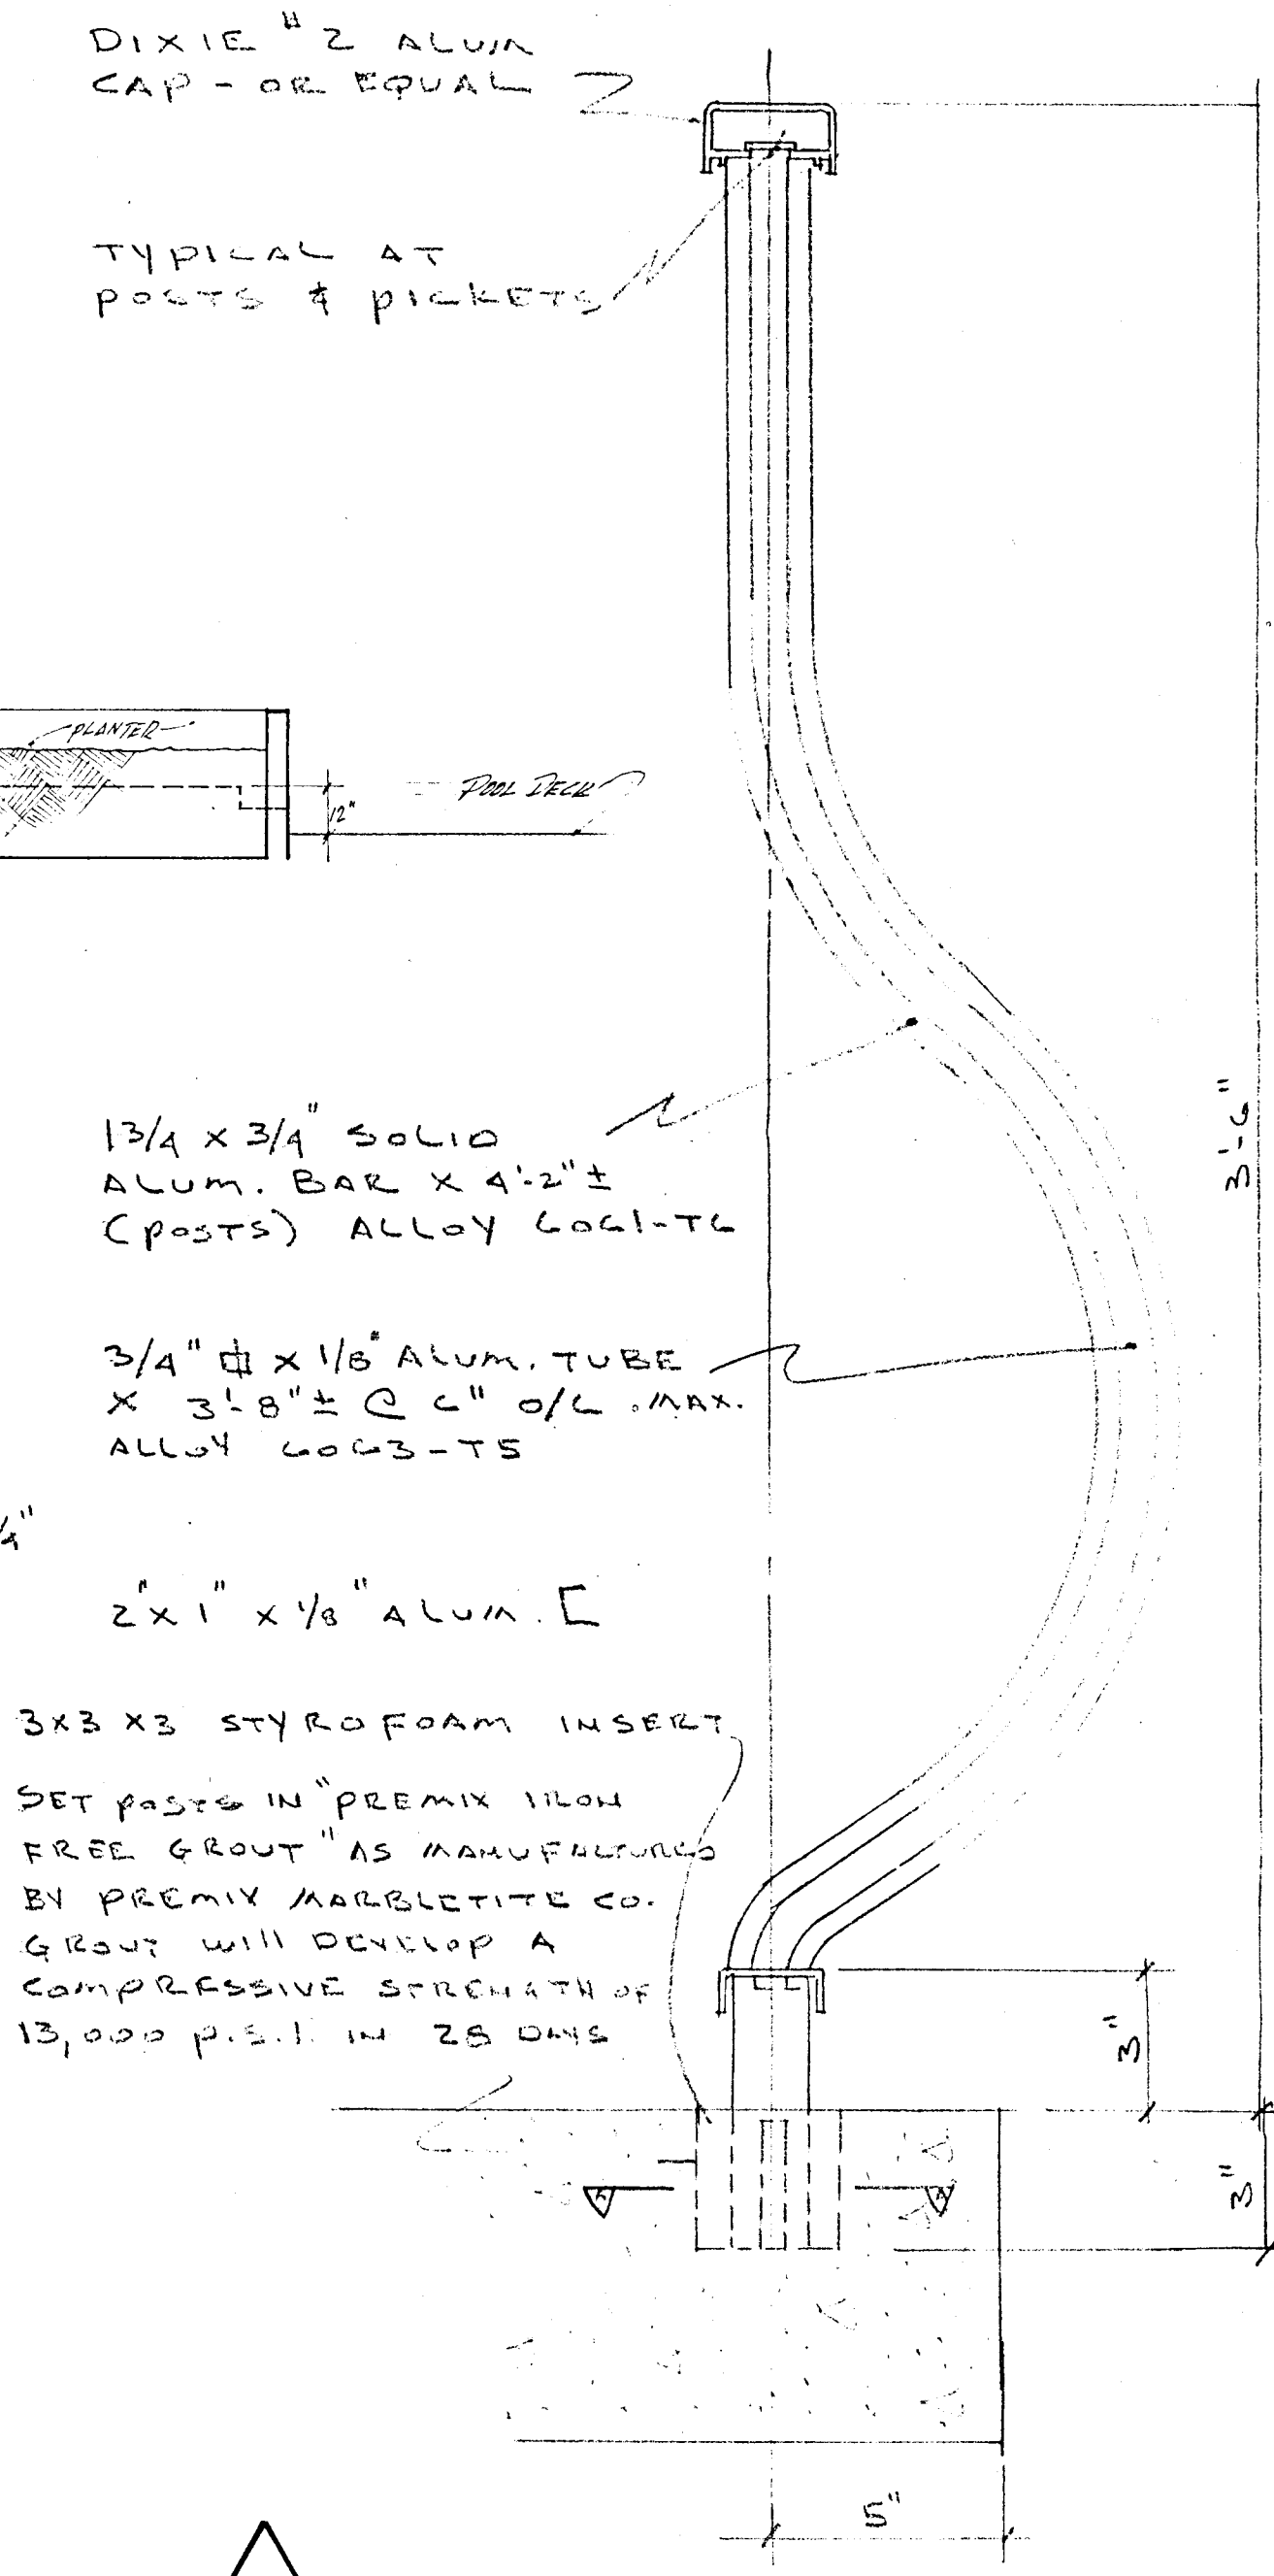 DIXIE #2 ALUM
CAP - OR EQUAL
TYPICAL AT
POSTS & PICKETS
PLANTER
12"
POOL DECK
3'-6"
1 3/4 x 3/4" SOLID
ALUM. BAR x 4'-2" ±
(POSTS) ALLOY 6061-T6
3/4" ⌀ x 1/8" ALUM. TUBE
x 3'-8" ± @ 6" O/C . MAX.
ALLOY 6063-T5
/4"
2" x 1" x 1/8" ALUM. [
3x3x3 STYROFOAM INSERT
SET POSTS IN "PREMIX IRON
FREE GROUT" AS MANUFACTURED
BY PREMIX MARBLETITE CO.
GROUT WILL DEVELOP A
COMPRESSIVE STRENGTH OF
13,000 P.S.I. IN 28 DAYS
3"
3"
A A
5"